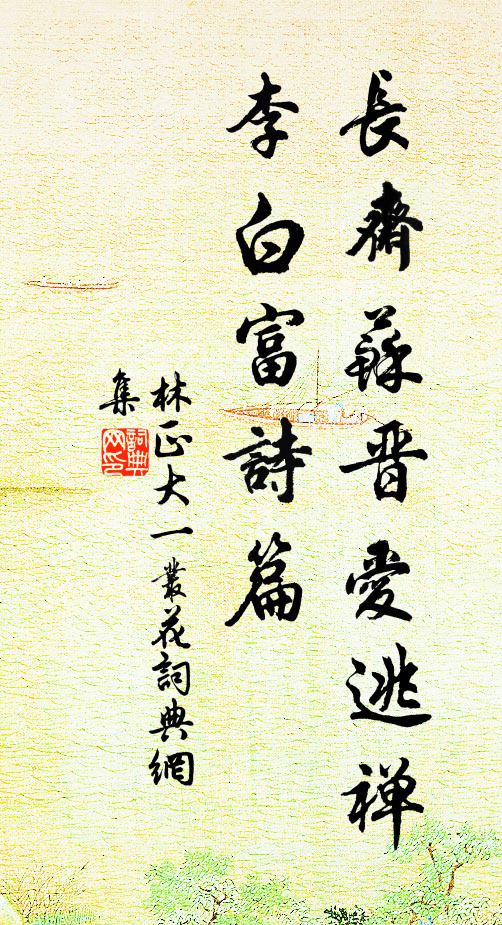 長齋蘇晋愛逃禅
李白富詩篇
林正大一叢花詞典網
集
詞典网印